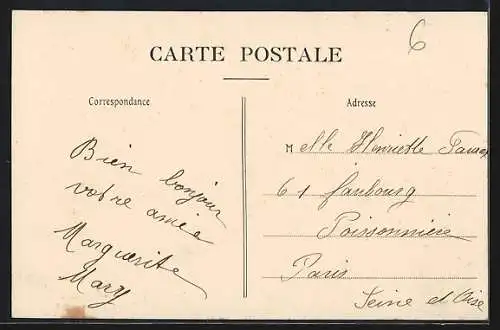 6
CARTE POSTALE
Correspondance
Adresse
Bien bonjour
votre amie
Marguerite
Mary
Melle Henriette
61 faubourg
Poissonnière
Paris
Seine et Oise